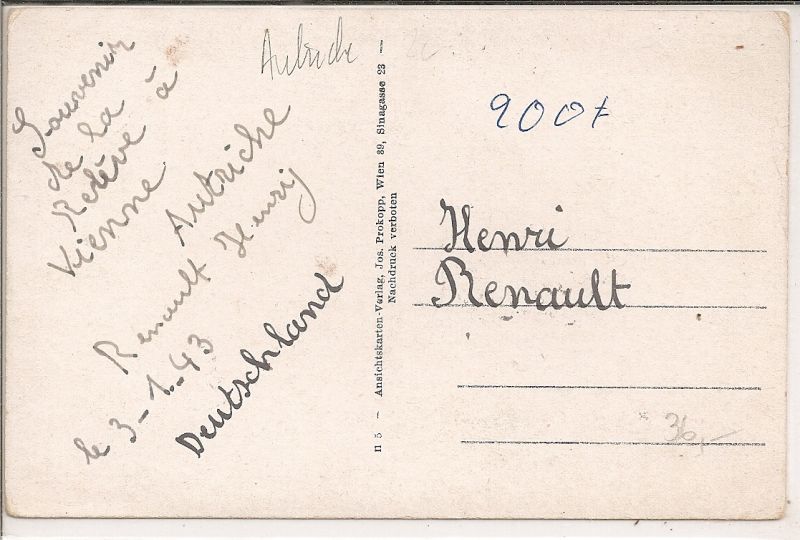 Souvenir
de la
Relève à
Vienne
Autriche
Renault Henrij
le 3-1-43
Deutschland
Autriche
II 5 — Ansichtskarten-Verlag, Jos. Prokopp, Wien 89, Sinagasse 23 —
Nachdruck verboten
Henri
Renault
36,-